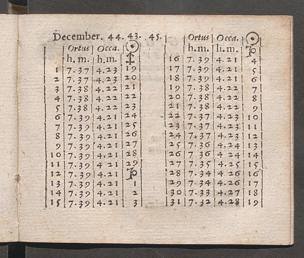 December. 44. 43. 45.
Ortus Occa. ☉
h. m. h. m. ♐
1 7.37 4.23 19
2 7.37 4.23 20
3 7.38 4.22 21
4 7.38 4.22 22
5 7.38 4.22 23
6 7.39 4.21 24
7 7.39 4.21 25
8 7.39 4.21 26
9 7.39 4.21 27
10 7.39 4.21 28
11 7.39 4.21 29
12 7.39 4.21 ♑
13 7.39 4.21 1
14 7.39 4.21 2
15 7.39 4.21 3
Ortus Occa. ☉
h. m. h. m. ♑
16 7.39 4.21 4
17 7.39 4.21 5
18 7.39 4.21 6
19 7.38 4.22 7
20 7.38 4.22 8
21 7.38 4.22 9
22 7.37 4.23 10
23 7.37 4.23 11
24 7.37 4.23 12
25 7.36 4.24 13
26 7.36 4.24 14
27 7.35 4.25 15
28 7.34 4.26 16
29 7.34 4.26 17
30 7.33 4.27 18
31 7.32 4.28 19